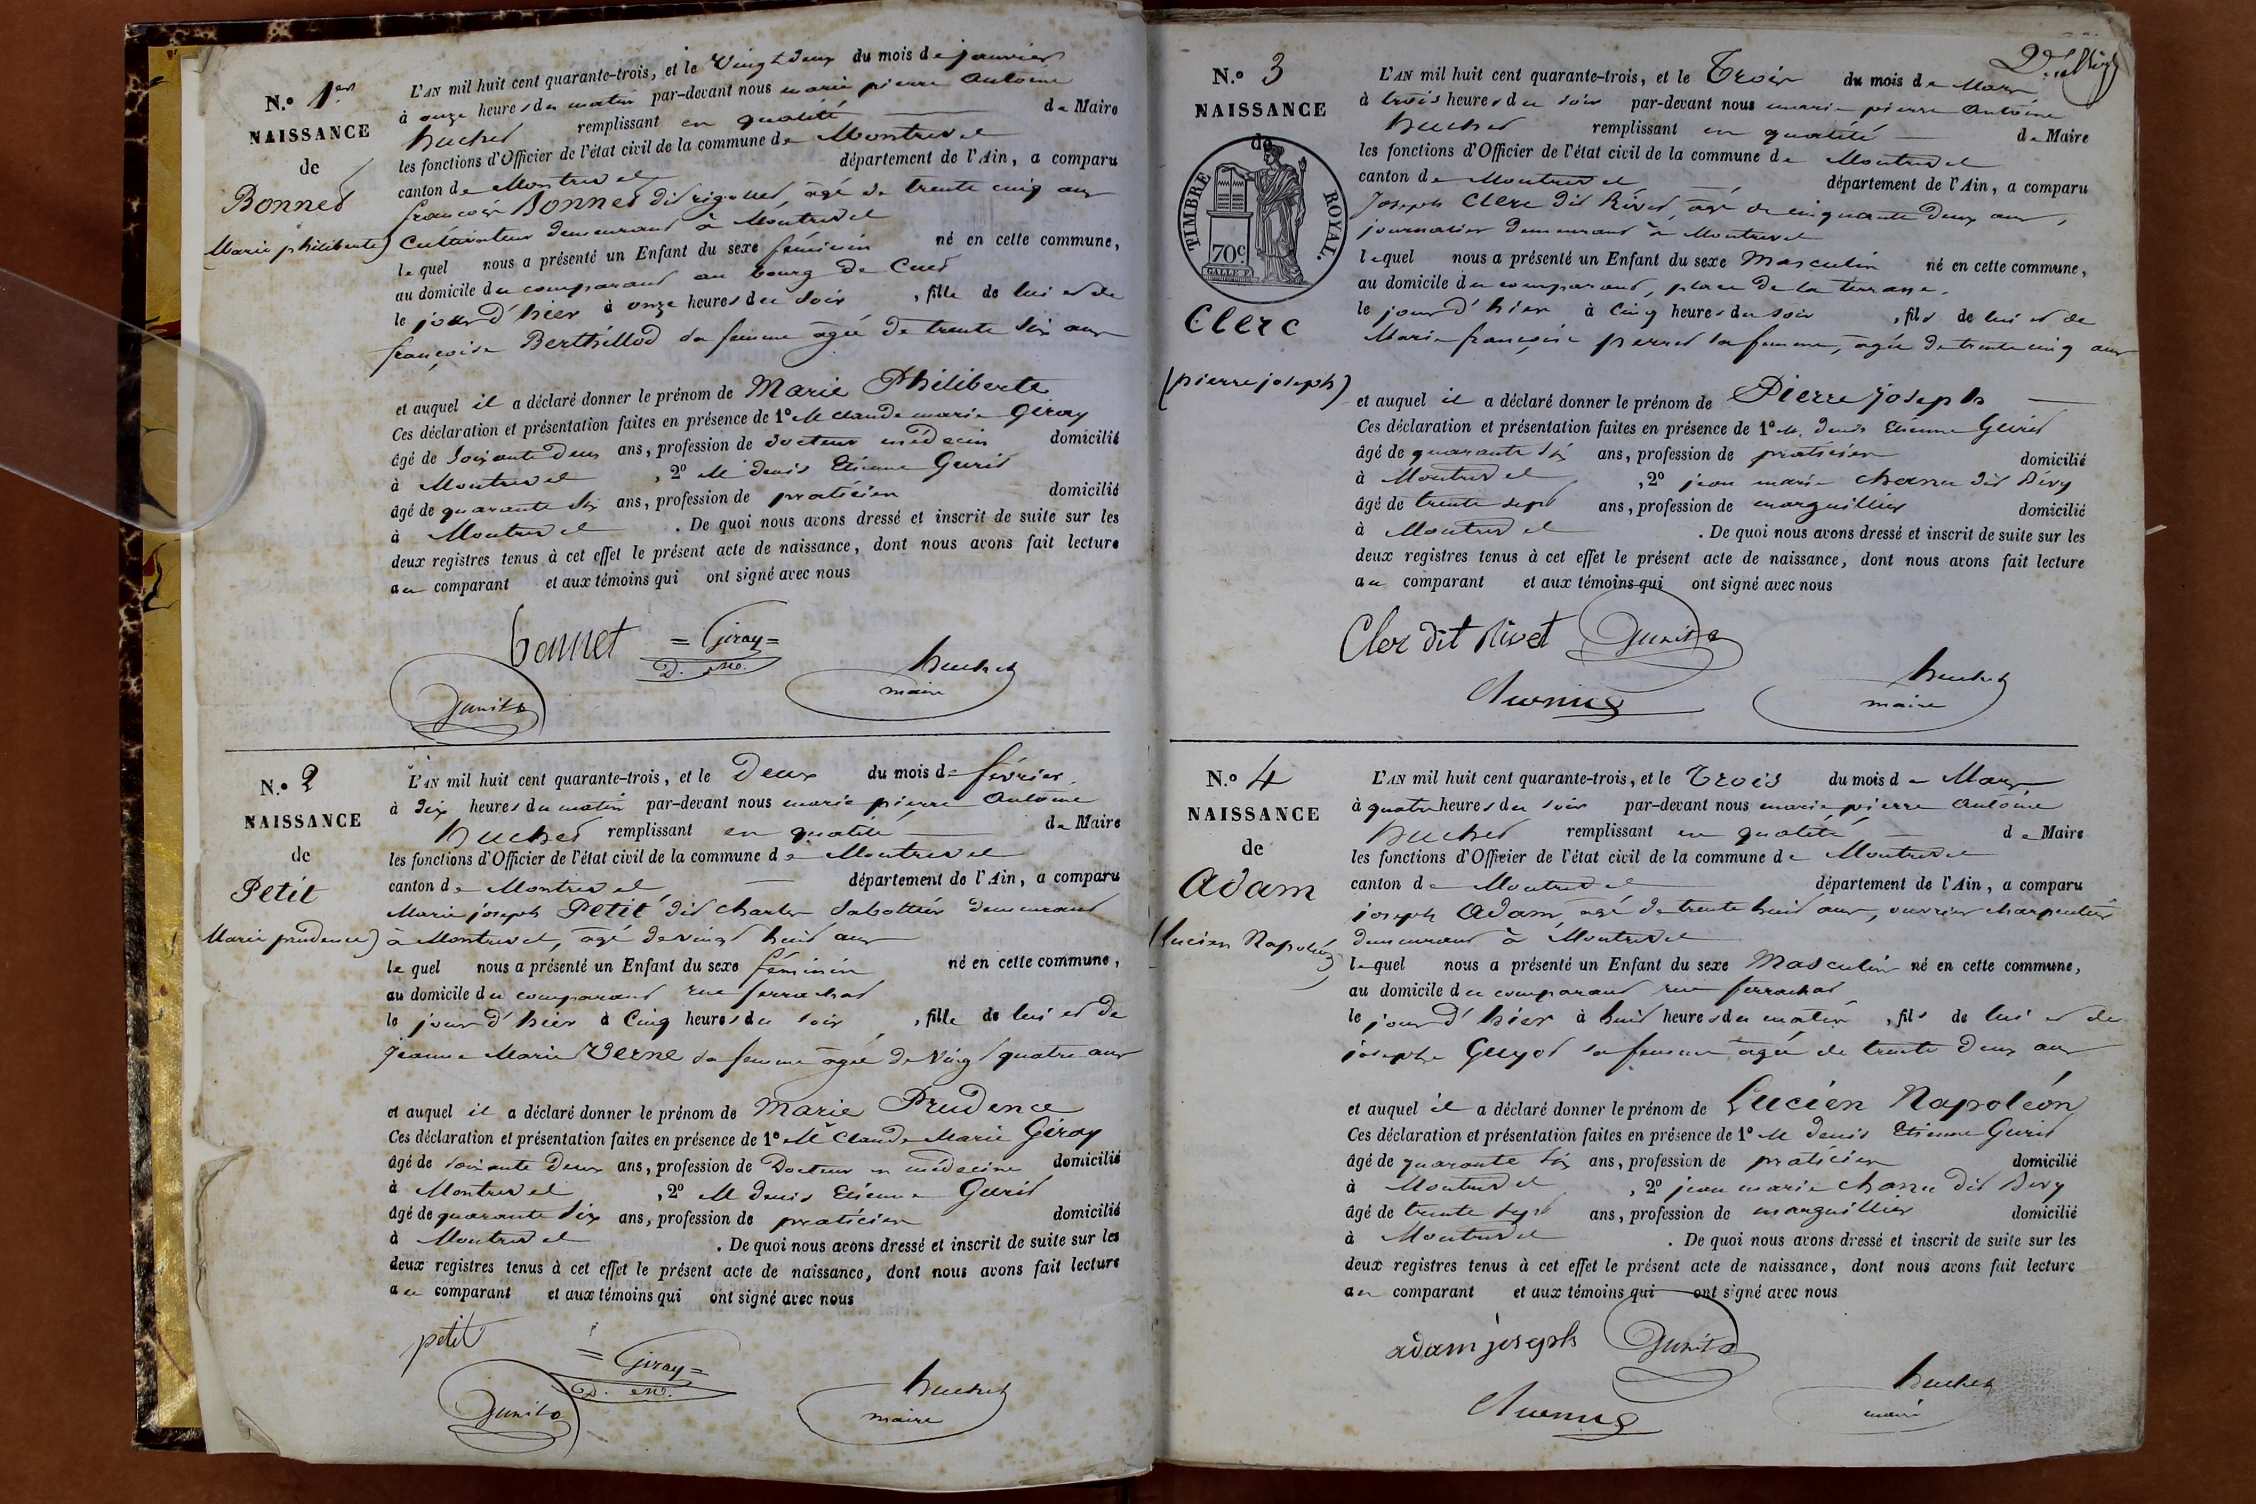 N.º 1er
NAISSANCE
de
Bonnet
(Marie philiberte)
L'AN mil huit cent quarante-trois, et le Vingt deux du mois de janvier
à onze heures du matin par-devant nous marie pierre Antoine
huchet remplissant en qualité de Maire
les fonctions d'Officier de l'état civil de la commune de Montrevel
canton de Montrevel département de l'Ain, a comparu
françois Bonnet dit rigollet, âgé de trente cinq ans
Cultivateur demeurant à Montrevel
lequel nous a présenté un Enfant du sexe féminin né en cette commune,
au domicile du comparant au bourg de Cuet
le jour d'hier à onze heures du soir, fille de lui et de
françoise Berthillod sa femme agée de trente six ans
et auquel il a déclaré donner le prénom de Marie Philiberte
Ces déclaration et présentation faites en présence de 1º M Claude marie Giroy
âgé de soixante deux ans, profession de docteur médecin domicilié
à Montrevel, 2º M denis Etienne Gurit
âgé de quarante six ans, profession de praticien domicilié
à Montrevel. De quoi nous avons dressé et inscrit de suite sur les
deux registres tenus à cet effet le présent acte de naissance, dont nous avons fait lecture
au comparant et aux témoins qui ont signé avec nous
bonnet = Giroy =
D. m.
huchet
maire
N.º 2
NAISSANCE
de
Petit
(Marie prudence)
L'AN mil huit cent quarante-trois, et le Deux du mois de février
à dix heures du matin par-devant nous marie pierre Antoine
huchet remplissant en qualité de Maire
les fonctions d'Officier de l'état civil de la commune de Montrevel
canton de Montrevel département de l'Ain, a comparu
Marie joseph Petit dit charles sabottier demeurant
à Montrevel, agé de vingt huit ans
lequel nous a présenté un Enfant du sexe féminin né en cette commune,
au domicile du comparant rue ferrachat
le jour d'hier à Cinq heures du soir, fille de lui et de
Jeanne Marie Verne sa femme agée de vingt quatre ans
et auquel il a déclaré donner le prénom de Marie Prudence
Ces déclaration et présentation faites en présence de 1º Mr Claude Marie Giroy
âgé de soixante deux ans, profession de Docteur en médecine domicilié
à Montrevel, 2º M denis Etienne Gurit
âgé de quarante six ans, profession de praticien domicilié
à Montrevel. De quoi nous avons dressé et inscrit de suite sur les
deux registres tenus à cet effet le présent acte de naissance, dont nous avons fait lecture
au comparant et aux témoins qui ont signé avec nous
petit
= Giroy =
D. m.
huchet
maire
N.º 3
NAISSANCE
de
TIMBRE ROYAL.
70c.
Clerc
(pierre joseph)
L'AN mil huit cent quarante-trois, et le Trois du mois de Mars
à trois heures du soir par-devant nous marie pierre Antoine
huchet remplissant en qualité de Maire
les fonctions d'Officier de l'état civil de la commune de Montrevel
canton de Montrevel département de l'Ain, a comparu
Joseph Clerc dit Rivet, agé de cinquante deux ans,
journalier demeurant à Montrevel
lequel nous a présenté un Enfant du sexe Masculin né en cette commune,
au domicile du comparant, place de la terrasse.
le jour d'hier à Cinq heures du soir, fils de lui et de
Marie françoise perret sa femme, agée de trente cinq ans
et auquel il a déclaré donner le prénom de Pierre joseph
Ces déclaration et présentation faites en présence de 1º M. denis Etienne Gurit
âgé de quarante six ans, profession de praticien domicilié
à Montrevel, 2º jean marie chanu dit Dévy
âgé de trente sept ans, profession de marguillier domicilié
à Montrevel. De quoi nous avons dressé et inscrit de suite sur les
deux registres tenus à cet effet le présent acte de naissance, dont nous avons fait lecture
au comparant et aux témoins qui ont signé avec nous
Cler dit Rivet
huchet
maire
N.º 4
NAISSANCE
de
Adam
(Lucien Napoléon)
L'AN mil huit cent quarante-trois, et le Trois du mois de Mars
à quatre heures du soir par-devant nous marie pierre Antoine
huchet remplissant en qualité de Maire
les fonctions d'Officier de l'état civil de la commune de Montrevel
canton de Montrevel département de l'Ain, a comparu
joseph Adam, agé de trente huit ans, ouvrier charpentier
demeurant à Montrevel
lequel nous a présenté un Enfant du sexe Masculin né en cette commune,
au domicile du comparant rue ferrachat
le jour d'hier à huit heures du matin, fils de lui et de
josephe Guyot sa femme agée de trente deux ans
et auquel il a déclaré donner le prénom de Lucien Napoléon
Ces déclaration et présentation faites en présence de 1º M denis Etienne Gurit
âgé de quarante six ans, profession de praticien domicilié
à Montrevel, 2º jean marie chanu dit Devy
âgé de trente sept ans, profession de marguillier domicilié
à Montrevel. De quoi nous avons dressé et inscrit de suite sur les
deux registres tenus à cet effet le présent acte de naissance, dont nous avons fait lecture
au comparant et aux témoins qui ont signé avec nous
adam joseph
huchet
maire